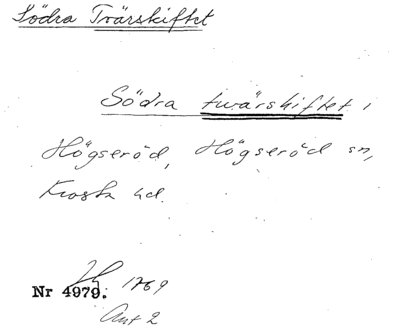 Södra Tvärskiftet
Södra twärskiftet i
Högseröd, Högseröd sn,
Frosta hd.
Nr 4979. 1769
Akt 2